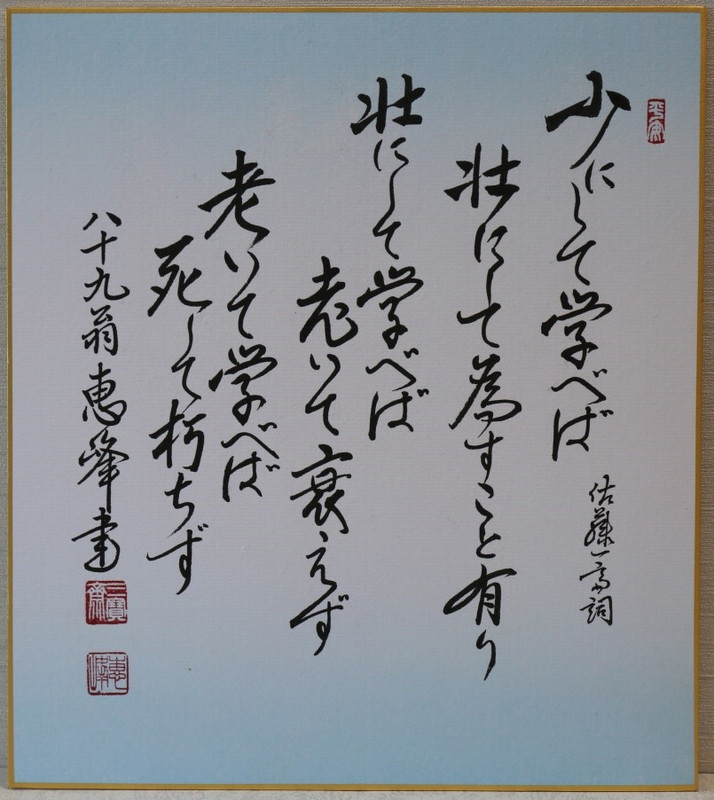 少にして学べば
佐藤一斎詞
壮にして為すこと有り
壮にして学べば
老いて衰えず
老いて学べば
死して朽ちず
八十九翁恵峰書
三寶齋
恵峰